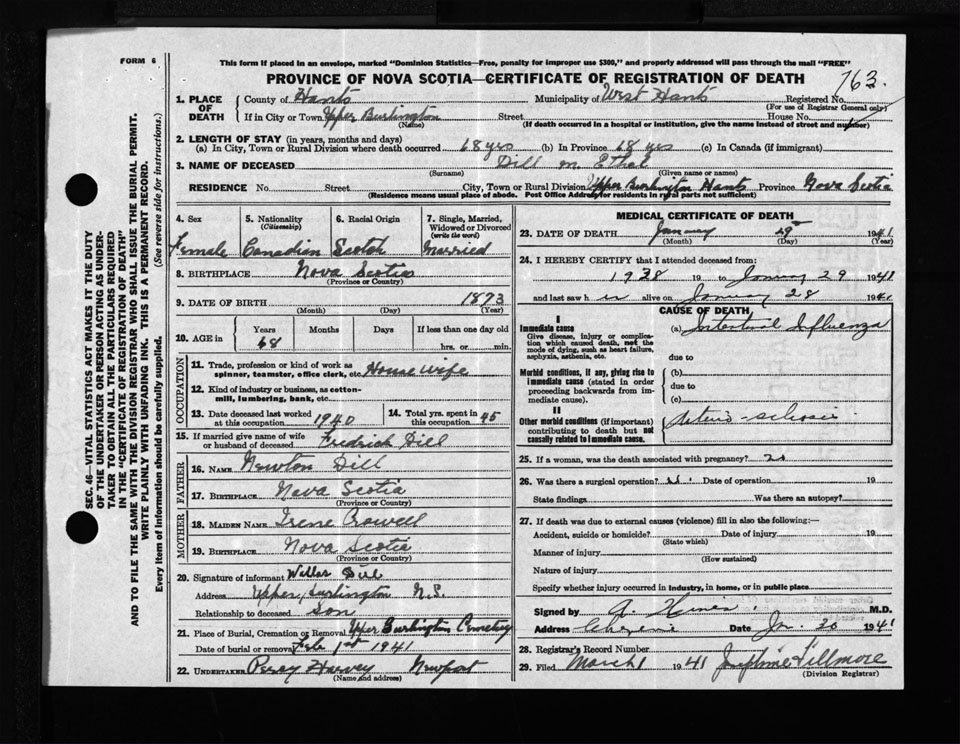 FORM 6
This form if placed in an envelope, marked "Dominion Statistics—Free, penalty for improper use $300," and properly addressed will pass through the mail "FREE"
PROVINCE OF NOVA SCOTIA—CERTIFICATE OF REGISTRATION OF DEATH
763
1. PLACE OF DEATH County of Hants Municipality of West Hants Registered No.
(For use of Registrar General only)
If in City or Town Upper Burlington Street House No.
(Name) (If death occurred in a hospital or institution, give the name instead of street and number)
2. LENGTH OF STAY (in years, months and days)
(a) In City, Town or Rural Division where death occurred 68 yrs (b) In Province 68 yrs (c) In Canada (if immigrant)
3. NAME OF DECEASED Dill M. Ethel
(Surname) (Given name or names)
RESIDENCE No. Street City, Town or Rural Division Upper Burlington Hants Province Nova Scotia
(Residence means usual place of abode. Post Office Address for residents in rural parts not sufficient)
SEC. 46—VITAL STATISTICS ACT MAKES IT THE DUTY
OF THE UNDERTAKER OR PERSON ACTING AS UNDER-
TAKER TO OBTAIN ALL THE PARTICULARS REQUIRED
IN THE "CERTIFICATE OF REGISTRATION OF DEATH"
AND TO FILE THE SAME WITH THE DIVISION REGISTRAR WHO SHALL ISSUE THE BURIAL PERMIT.
WRITE PLAINLY WITH UNFADING INK. THIS IS A PERMANENT RECORD.
Every item of information should be carefully supplied. (See reverse side for instructions.)
4. Sex 5. Nationality (Citizenship) 6. Racial Origin 7. Single, Married, Widowed or Divorced (write the word)
Female Canadian Scotch Married
8. BIRTHPLACE Nova Scotia
(Province or Country)
9. DATE OF BIRTH 1873
(Month) (Day) (Year)
10. AGE in Years Months Days If less than one day old
68 hrs. or min.
OCCUPATION
11. Trade, profession or kind of work as spinner, teamster, office clerk, etc. House Wife
12. Kind of industry or business, as cotton-mill, lumbering, bank, etc.
13. Date deceased last worked at this occupation 1940 14. Total yrs. spent in this occupation 45
15. If married give name of wife or husband of deceased Fredrick Dill
FATHER
16. NAME Newton Dill
17. BIRTHPLACE Nova Scotia
(Province or Country)
MOTHER
18. MAIDEN NAME Irene Crowell
19. BIRTHPLACE Nova Scotia
(Province or Country)
20. Signature of informant Dill
Address Upper Burlington N.S.
Relationship to deceased Son
21. Place of Burial, Cremation or Removal Upper Burlington Cemetery
Date of burial or removal Feb 1st 1941
22. UNDERTAKER Percy Harvey Newport
(Name and address)
MEDICAL CERTIFICATE OF DEATH
23. DATE OF DEATH January 29 1941
(Month) (Day) (Year)
24. I HEREBY CERTIFY that I attended deceased from:
1938 19 to January 29 1941
and last saw h er alive on January 28 1941
CAUSE OF DEATH
I
Immediate cause
Give disease, injury or complication which caused death, not the mode of dying, such as heart failure, asphyxia, asthenia, etc.
(a) Intestinal Influenza
due to
Morbid conditions, if any, giving rise to immediate cause (stated in order proceeding backwards from immediate cause).
(b)
due to
(c)
II
Other morbid conditions (if important) contributing to death but not causally related to immediate cause.
25. If a woman, was the death associated with pregnancy? no
26. Was there a surgical operation? Date of operation 19
State findings Was there an autopsy?
27. If death was due to external causes (violence) fill in also the following:—
Accident, suicide or homicide? Date of injury 19
(State which)
Manner of injury
(How sustained)
Nature of injury
Specify whether injury occurred in industry, in home, or in public place
Signed by M.D.
Address Date Jan. 1941
28. Registrar's Record Number
29. Filed March 1 1941 Josephine Fillmore
(Division Registrar)